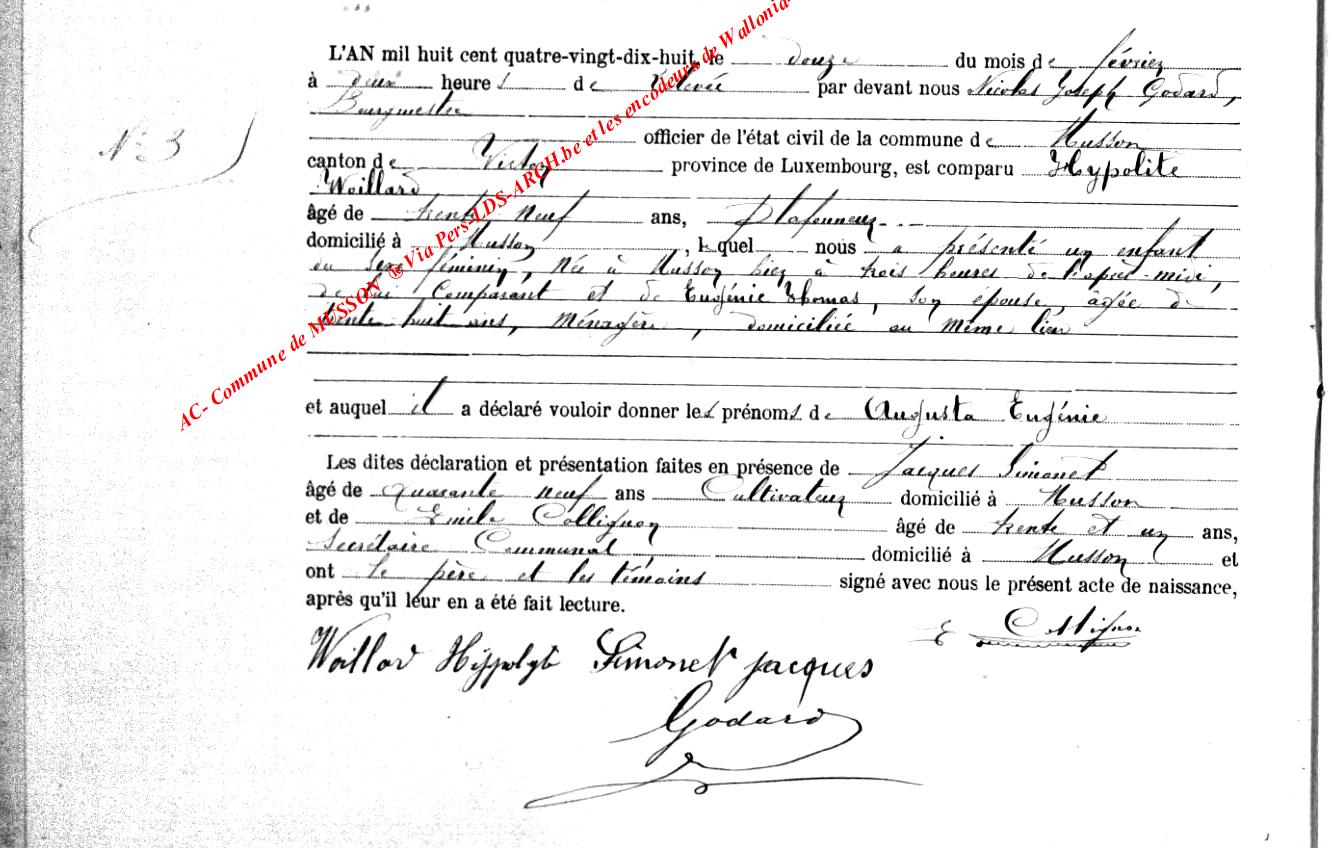 L'AN mil huit cent quatre-vingt-dix-huit, le douze du mois de février
à deux heures de relevée par devant nous Nicolas Joseph Godard,
Bourgmestre
officier de l'état civil de la commune de Musson
N° 3
canton de Virton province de Luxembourg, est comparu Hypolite
Woillard
âgé de trente neuf ans, plafonneur
domicilié à Musson, lequel nous a présenté un enfant
du sexe féminin, née à Musson hier à trois heures de l'après-midi,
de lui comparant et de Eugénie Thomas, son épouse, âgée de
trente huit ans, ménagère, domiciliée au même lieu
et auquel il a déclaré vouloir donner les prénoms de Augusta Eugénie
Les dites déclaration et présentation faites en présence de Jacques Simonet
âgé de quarante neuf ans Cultivateur domicilié à Musson
et de Emile Collignon âgé de trente et un ans,
Secrétaire Communal, domicilié à Musson et
ont le père et les témoins signé avec nous le présent acte de naissance,
après qu'il leur en a été fait lecture.
E Collignon
Woillard Hippolyte Simonet Jacques
Godard
AC- Commune de MUSSON ® Via Pers-LDS-ARCH.be et les encodeurs de Wallonia-